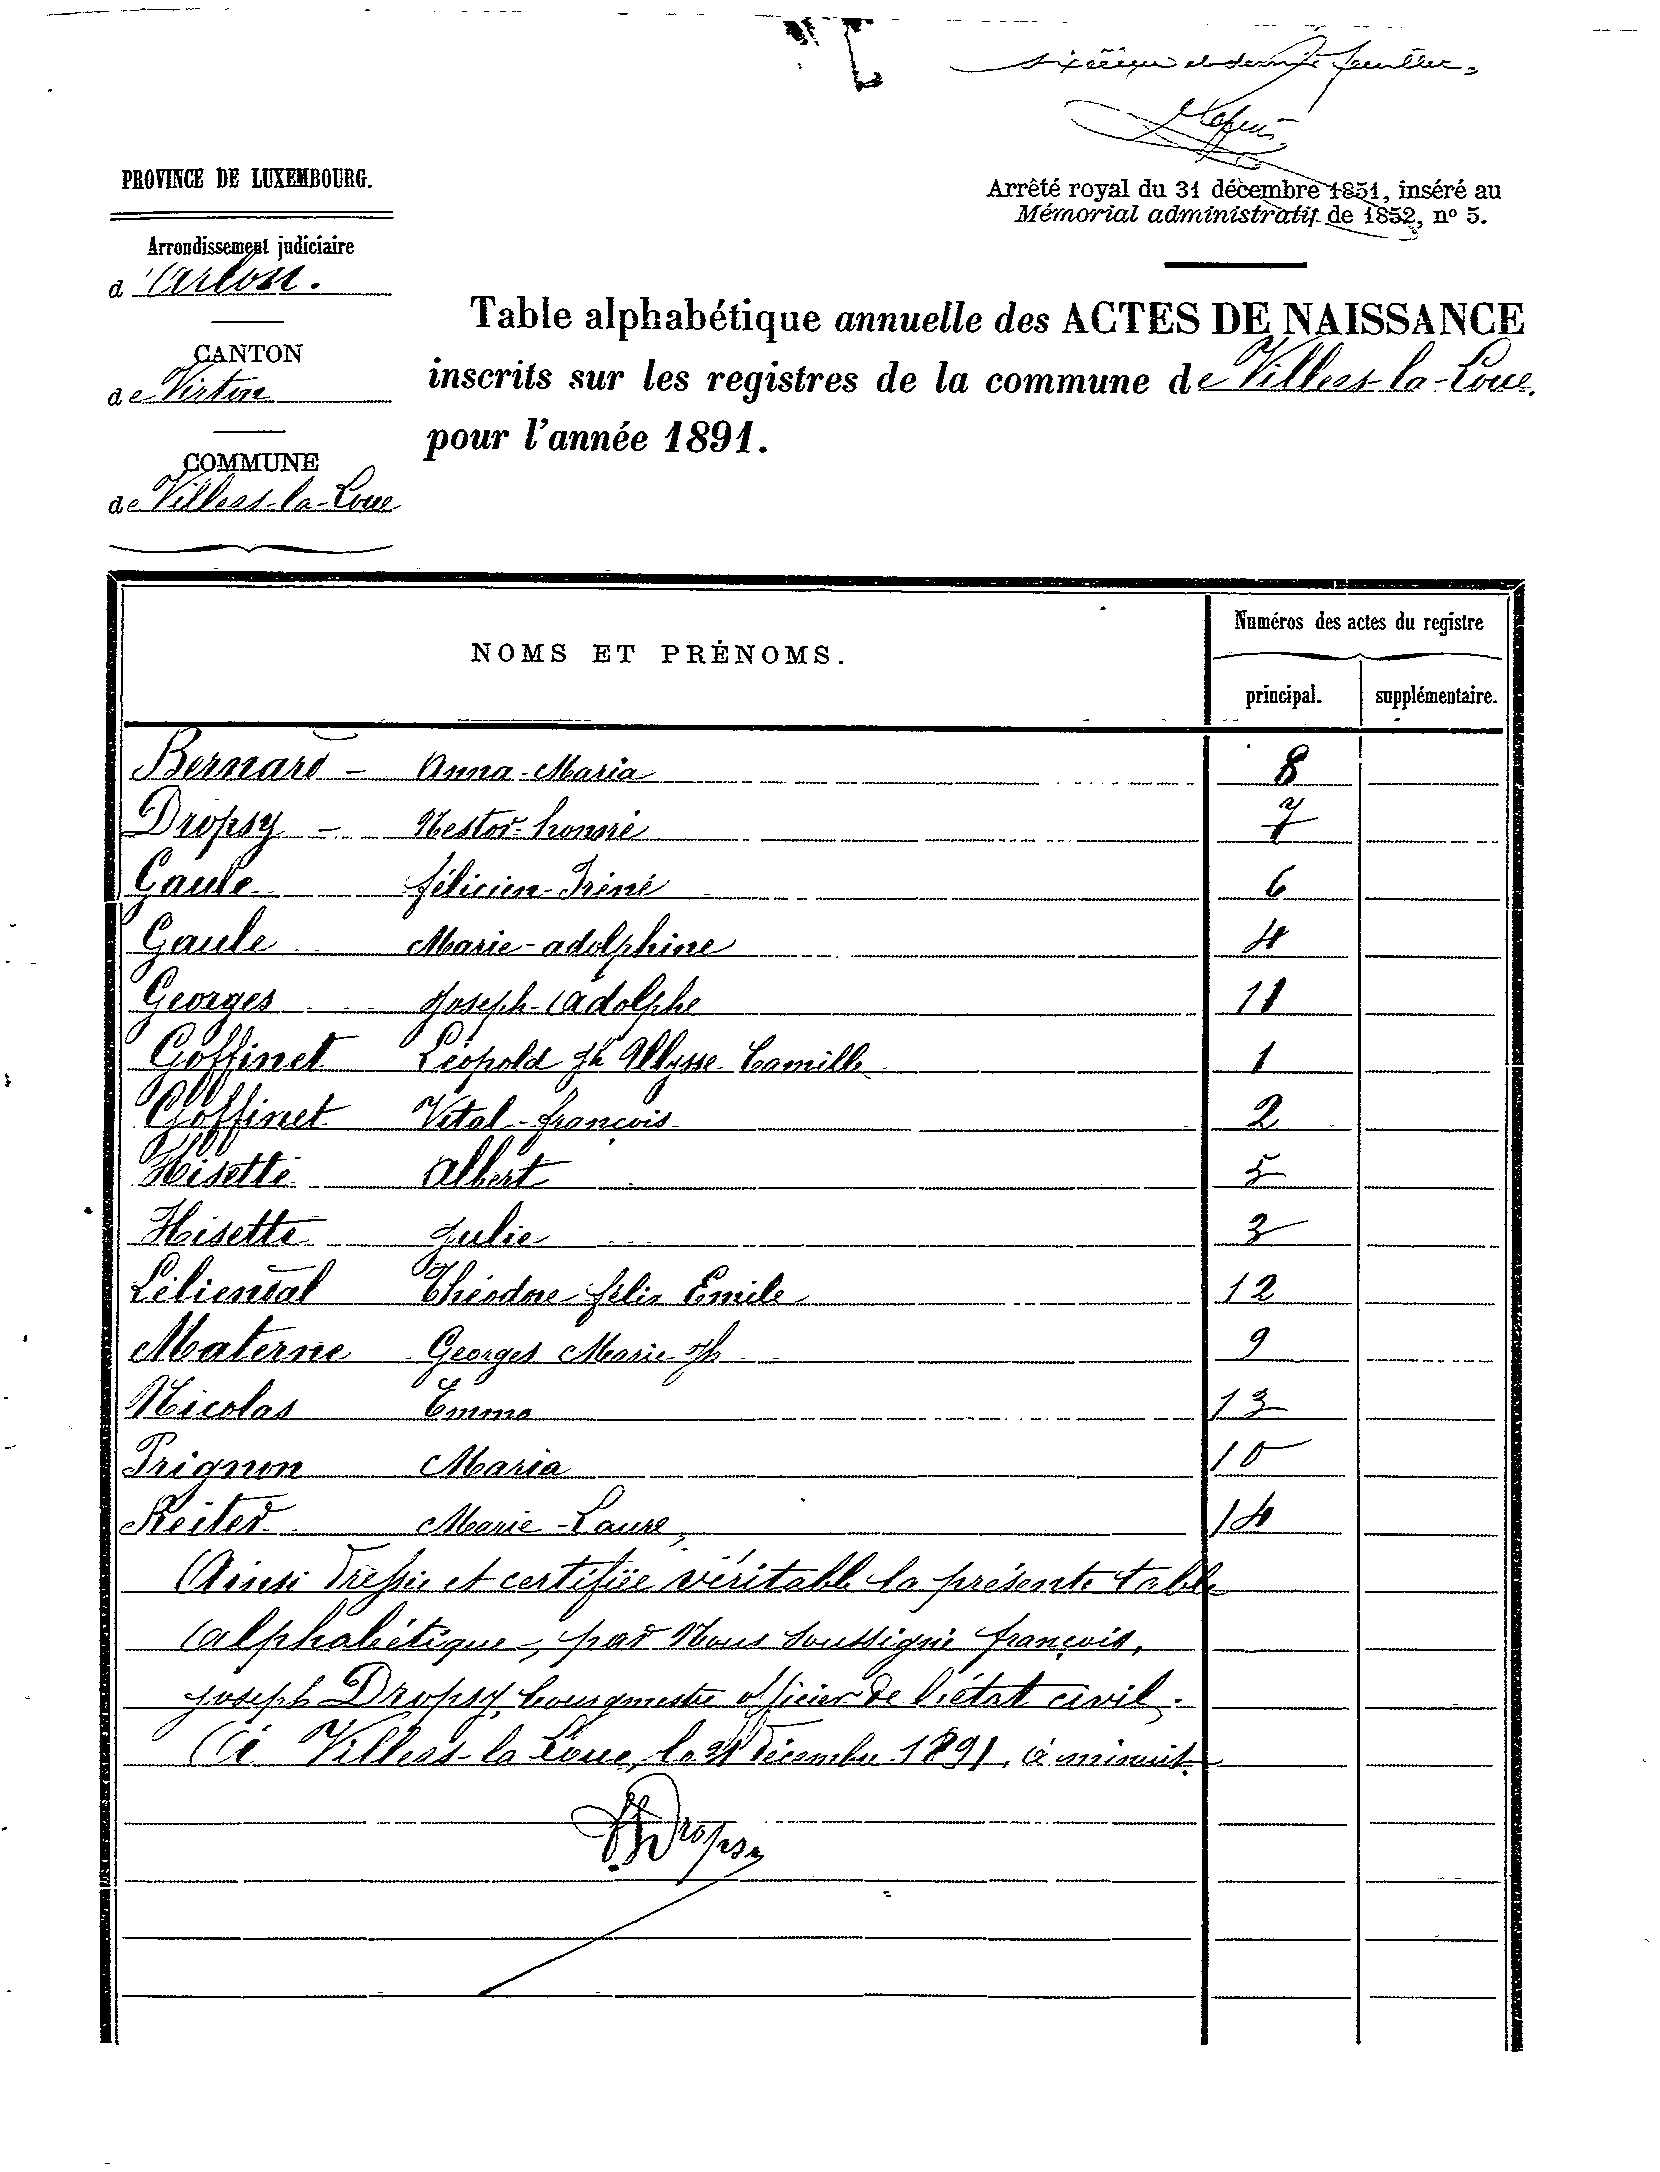 sixième et dernier feuillet.
PROVINCE DE LUXEMBOURG.
Arrondissement judiciaire
d'Arlon.
CANTON
de Virton
COMMUNE
de Villers-la-Loue
Arrêté royal du 31 décembre 1851, inséré au
Mémorial administratif de 1852, nº 5.
Table alphabétique annuelle des ACTES DE NAISSANCE
inscrits sur les registres de la commune de Villers-la-Loue.
pour l'année 1891.
NOMS ET PRÉNOMS.
Numéros des actes du registre
principal. supplémentaire.
Bernard - Anna-Maria 8
Dropsy - Nestor-honoré 7
Gaule félicien-Iréné 6
Gaule Marie-adolphine 4
Georges Joseph-Adolphe 11
Goffinet Léopold Jh Ulysse Camille 1
Goffinet Vital-françois 2
Hisette Albert 5
Hisette Julie 3
Liliendal Théodore félix Emile 12
Materne Georges Marie Jh 9
Nicolas Emma 13
Prignon Maria 10
Reiter Marie-Laure, 14
Ainsi dressée et certifiée véritable la présente table
alphabétique, par Nous soussigné françois,
joseph Dropsy, bourgmestre officier de l'état civil.
à Villers-la-Loue, le 31 décembre 1891, à minuit.
Dropsy